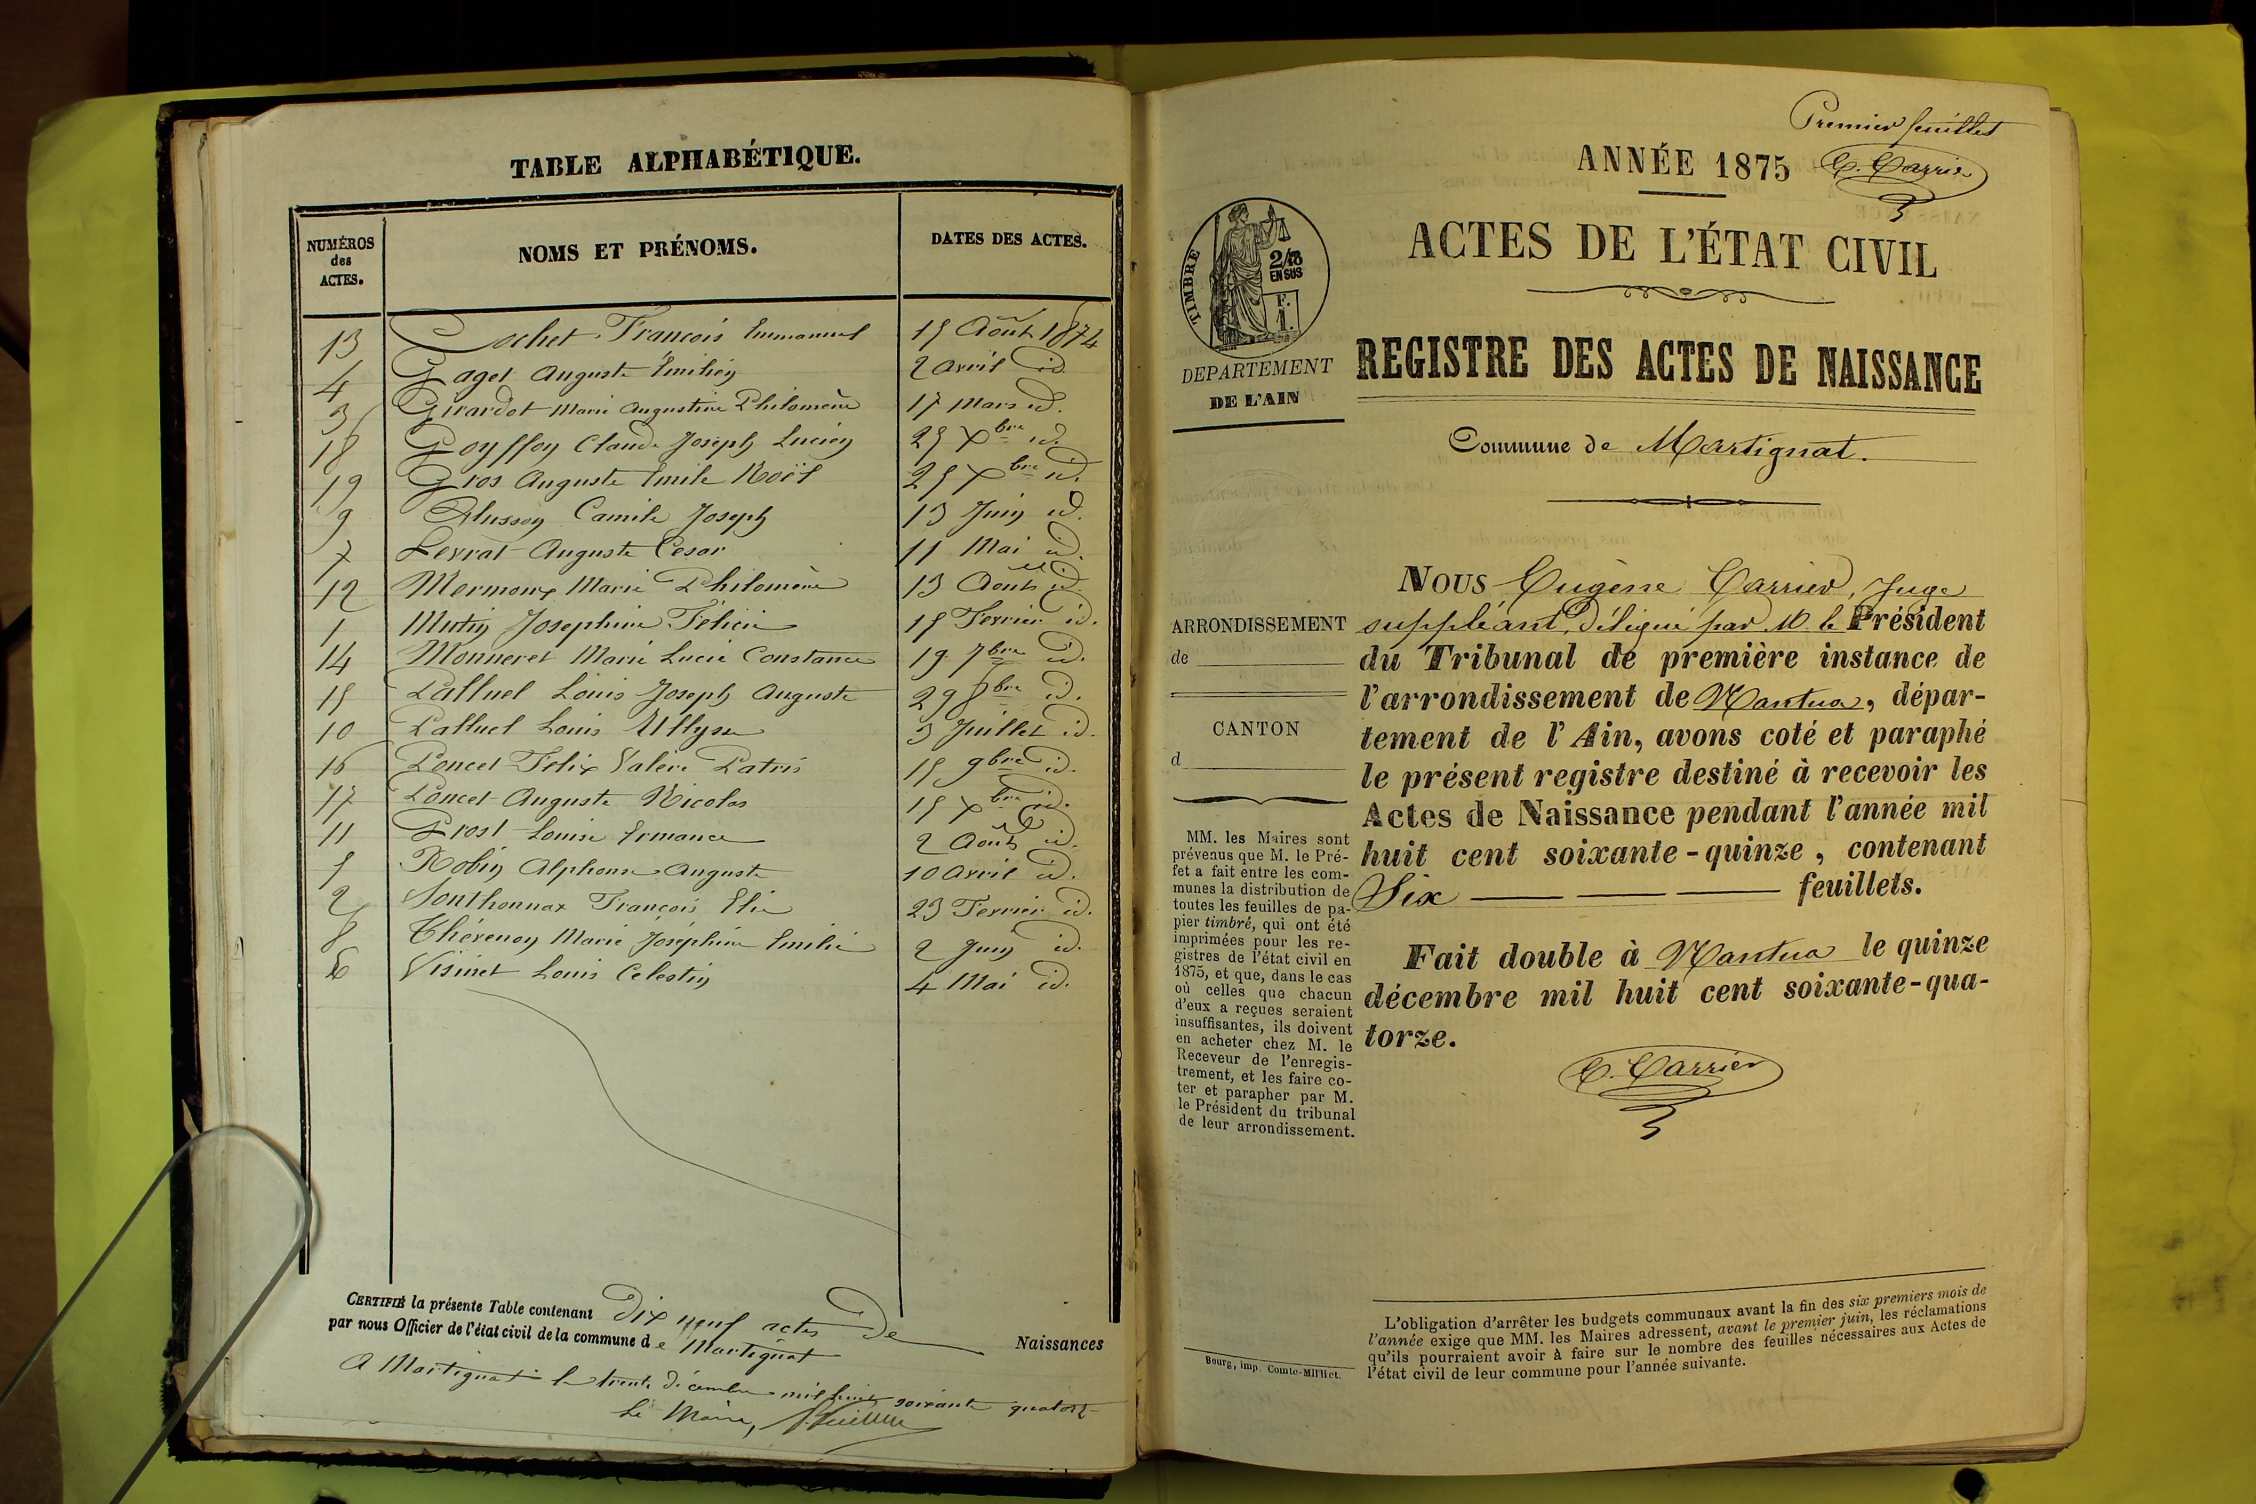 TABLE ALPHABÉTIQUE.
NUMÉROS des ACTES. NOMS ET PRÉNOMS. DATES DES ACTES.
13 Cochet François Emmanuel 15 Août 1874
4 Gaget Auguste Emilien 2 avril id
3 Girardot Marie Augustine Philomène 17 Mars id.
18 Goyffon Claude Joseph Lucien 25 Xbre id.
19 Gros Auguste Emile Noël 25 Xbre id.
9 Camile Joseph 13 Juin id.
7 Levrat Auguste Cesar 11 Mai id.
12 Mermoux Marie Philomène 13 Août id.
1 Mutin Josephine Félicie 15 Fevrier id.
14 Monneret Marie Lucie Constance 19 7bre id.
15 Palluel Louis Joseph Auguste 29 8bre id.
10 Palluel Louis Ullysse 3 Juillet id.
16 Poncet Felix Valère Patris 15 9bre id.
17 Poncet Auguste Nicolas 15 Xbre id.
11 Prost Louise Ermance 2 Août id.
5 Robin Alphonse Auguste 10 avril id.
2 Sonthonnax François Elie 23 Fevrier id.
8 Thévenon Marie Joséphine Emilie 2 Juin id.
6 Visinet Louis Celestin 4 Mai id.
CERTIFIÉ la présente Table contenant Dix neuf actes De Naissances
par nous Officier de l'état civil de la commune de Martignat
A Martignat le trente décembre mil huit soixante quatorze
Le Maire,
Premier feuillet
C. Carrier
ANNÉE 1875
ACTES DE L'ÉTAT CIVIL
TIMBRE
2/10 EN SUS
F. 1.
DEPARTEMENT
DE L'AIN
REGISTRE DES ACTES DE NAISSANCE
Commune de Martignat.
ARRONDISSEMENT
de
CANTON
d
MM. les Maires sont
prévenus que M. le Pré-
fet a fait entre les com-
munes la distribution de
toutes les feuilles de pa-
pier timbré, qui ont été
imprimées pour les re-
gistres de l'état civil en
1875, et que, dans le cas
où celles que chacun
d'eux a reçues seraient
insuffisantes, ils doivent
en acheter chez M. le
Receveur de l'enregis-
trement, et les faire co-
ter et parapher par M.
le Président du tribunal
de leur arrondissement.
NOUS Eugène Carrier, Juge
suppléant, délégué par M. le Président
du Tribunal de première instance de
l'arrondissement de Nantua, dépar-
tement de l'Ain, avons coté et paraphé
le présent registre destiné à recevoir les
Actes de Naissance pendant l'année mil
huit cent soixante-quinze, contenant
Six feuillets.
Fait double à Nantua le quinze
décembre mil huit cent soixante-qua-
torze.
C. Carrier
L'obligation d'arrêter les budgets communaux avant la fin des six premiers mois de
l'année exige que MM. les Maires adressent, avant le premier juin, les réclamations
qu'ils pourraient avoir à faire sur le nombre des feuilles nécessaires aux Actes de
l'état civil de leur commune pour l'année suivante.
Bourg, imp. Comte-Milliet.